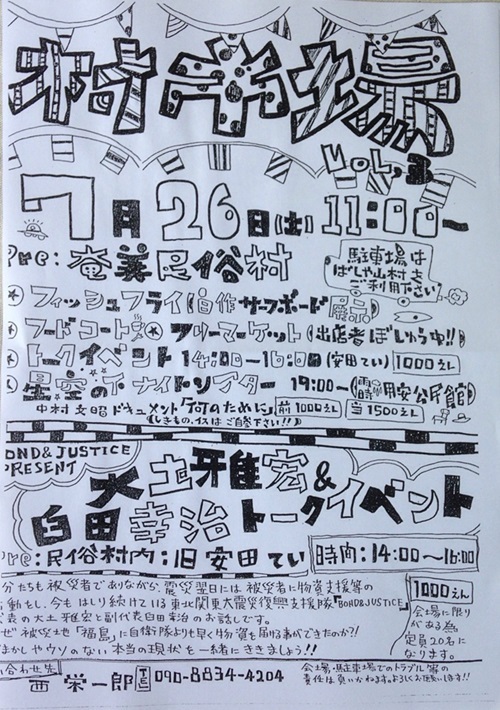 村楽場
VOL,3
7月26日(土) 11:00〜
Pre: 奄美民俗村
駐車場は
ばしゃ山村を
ご利用下さい
フィッシュフライ(自作サーフボード展示)
フードコート フリーマーケット(出店者ぼしゅう中!!)
トークイベント 14:00〜16:00(安田てい) 1000えん
星空の下ナイトシアター 19:00〜(雨時用安公民館)
中村文昭ドキュメント「何のために」 前1000えん 当1500えん
(しきもの、イスはご自参下さい!!)
BOND&JUSTICE
PRESENT
大土雅宏&
臼田幸治トークイベント
Pre:民俗村内:旧安田てい
時間:14:00〜16:00
分たちも被災者でありながら、震災翌日には被災者に物資支援等の
動をし、今もはしり続けている東北関東大震災復興支援隊「BOND&JUSTICE」
代表の大土雅宏と副代表臼田幸治のお話しです。
ぜ被災地「福島」に自衛隊よりも早く物資を届ける事ができたのか?!
まかしやウソのない本当の現状を一緒にききましょう!!
1000えん
会場に限り
がある為、
定員20名に
なります。
い合わせ先
西 栄一郎 TEL 090-8834-4204
会場・駐車場でのトラブル等の
責任は負いかねます。よろしくお願いします!!